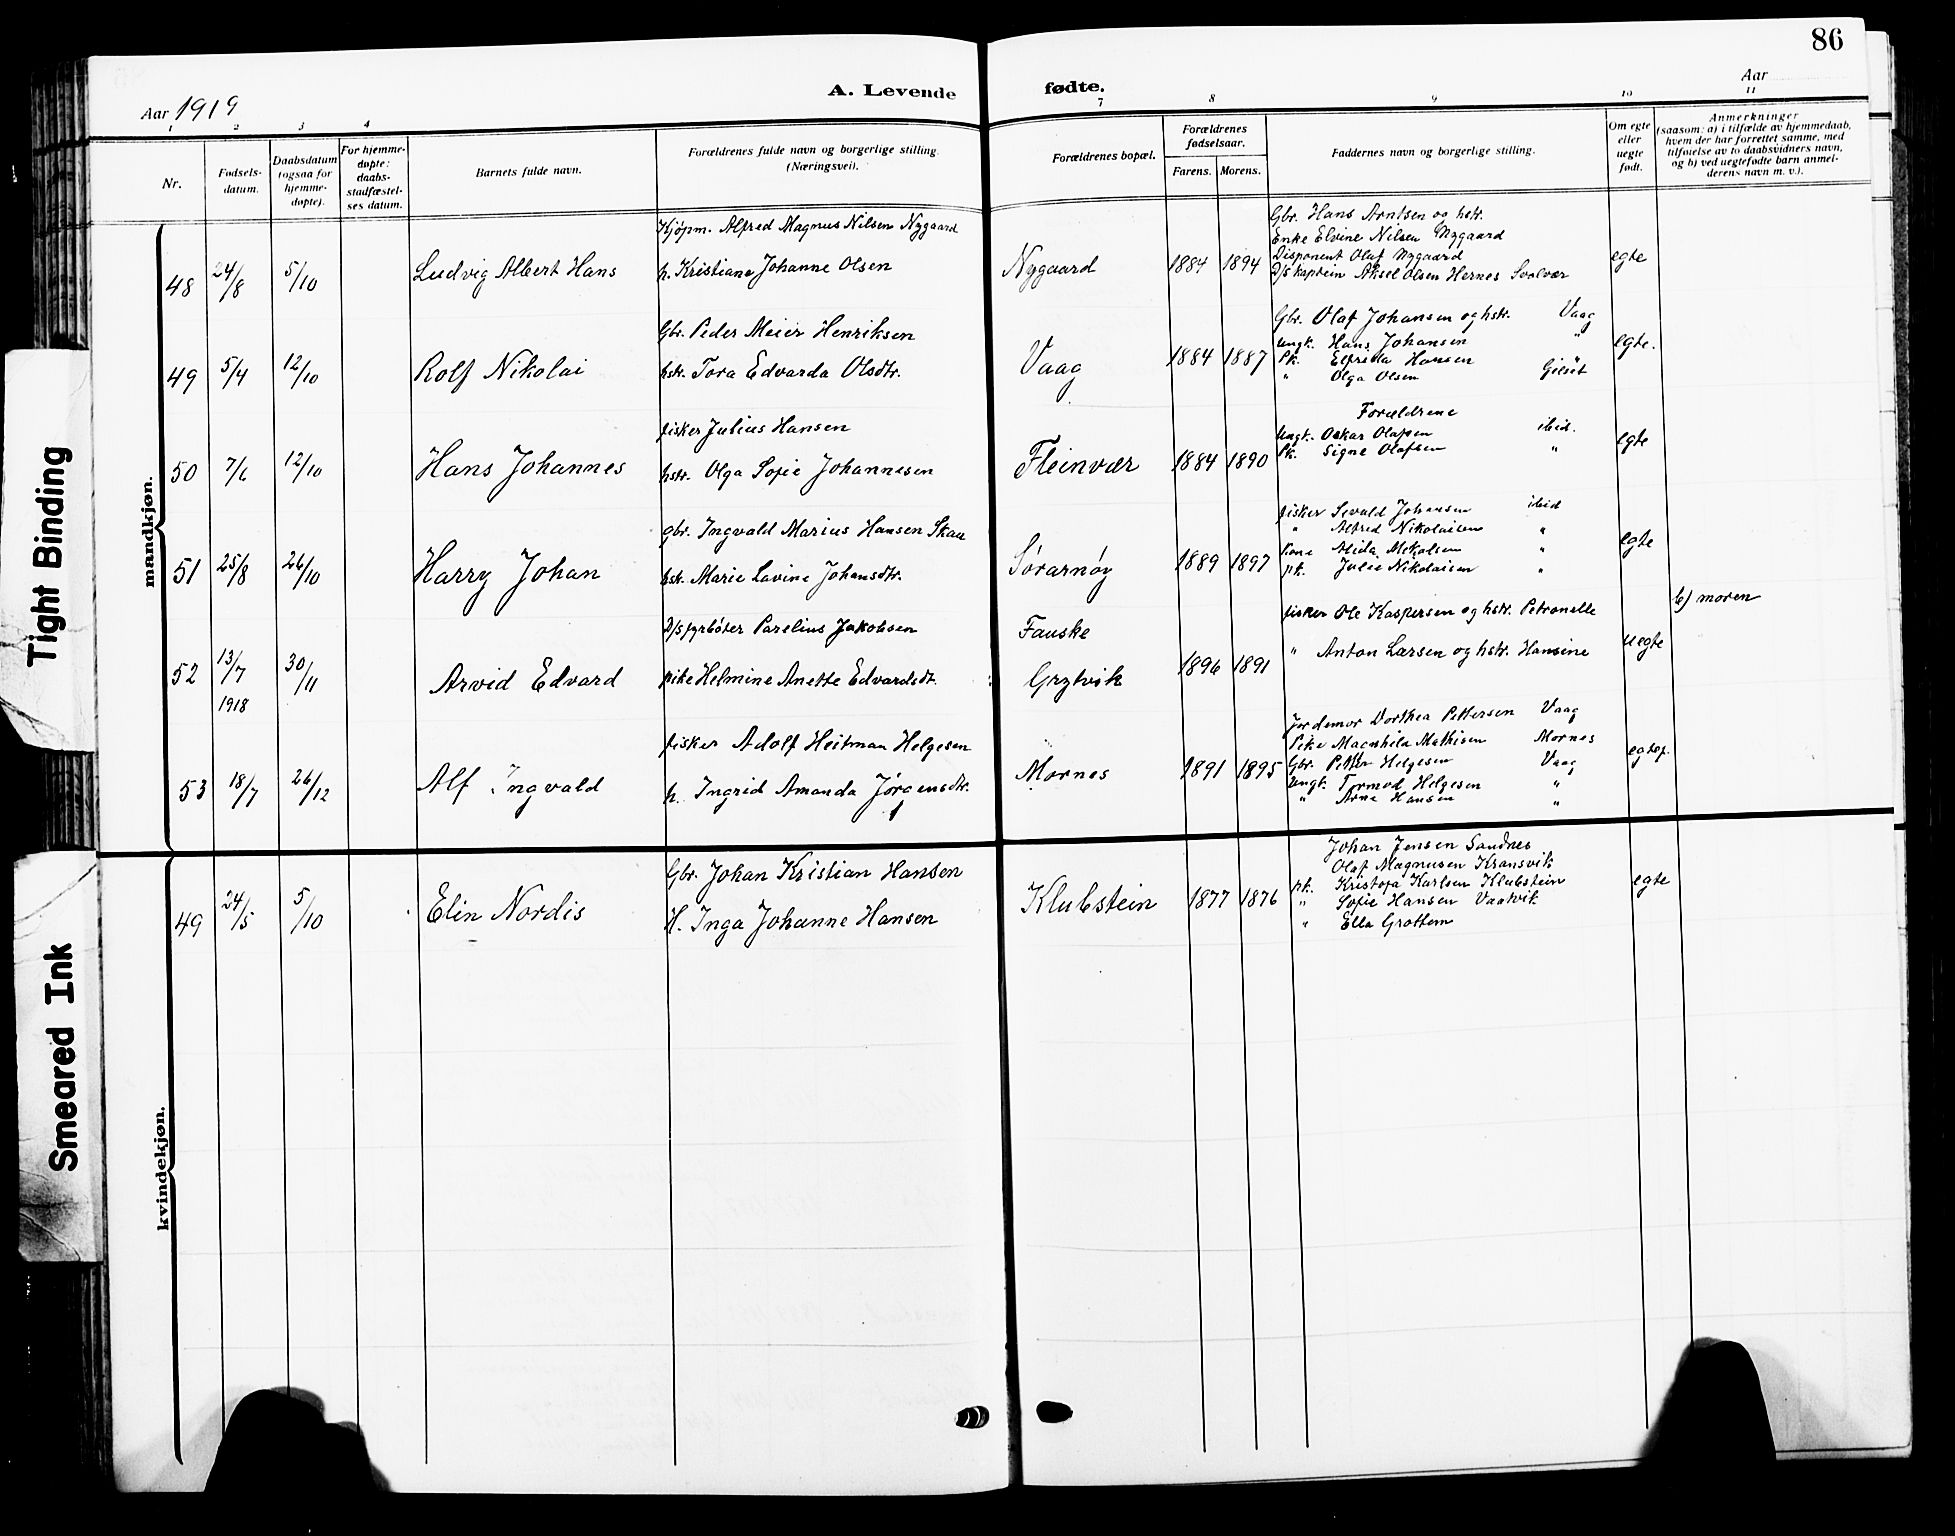 86
Tight Binding
Smeared Ink
Aar 1919
A. Levende fødte.
Aar
1 2 3 4 7 8 9 10 11
Nr.
Fødsels-
datum.
Daabsdatum
(ogsaa for
hjemme-
døpte).
For hjemme-
døpte:
daabs-
stadfæstel-
ses datum.
Barnets fulde navn.
Forældrenes fulde navn og borgerlige stilling
(Næringsvei).
Forældrenes bopæl.
Forældrenes
fødselsaar.
Farens. Morens.
Faddernes navn og borgerlige stilling.
Om egte
eller
uegte
født.
Anmerkninger
(saasom: a) i tilfælde av hjemmedaab,
hvem der har forrettet samme, med
tilføielse av to daabsvidners navn,
og b) ved uegtefødte barn anmel-
derens navn m. v.).
mandkjøn.
48 24/8 5/10 Ludvig Albert Hans
Kjøpm. Alfred Magnus Nilsen Nygaard
h. Kristiane Johanne Olsen
Nygaard 1884 1894
Gbr. Hans Arntsen og hstr.
Enke Elvine Nilsen Nygaard
Disponent Olaf Nygaard
D/S kaptein Aksel Olsen Hernes Svolvær
egte
49 5/4 12/10 Rolf Nikolai
Gbr. Peder Meier Henriksen
hstr. Tora Edvarda Olsdtr.
Vaag 1884 1887
Gbr. Olaf Johansen og hstr. Vaag
Ungk. Hans Johansen "
Pk. Elfrida Hansen
" Olga Olsen Gilset
egte.
50 7/6 12/10 Hans Johannes
fisker Julius Hansen
hstr. Olga Sofie Johannesen
Fleinvær 1884 1890
Forældrene
Ungk. Oskar Olafsen ibid.
Pk. Signe Olafsen "
egte
51 25/8 26/10 Harry Johan
gbr. Ingvald Marius Hansen Skau
hst. Marie Lavine Johansdtr.
Sørarnøy 1889 1897
fisker Sevald Johansen ibid
" Alfred Nikolaisen "
Kone Alida Mikalsen "
pk. Julie Nikolaisen "
egte
52 13/7 1918 30/11 Arvid Edvard
D/S fyrbøter Parelius Jakobsen
pike Helmine Anette Edvardsdt.
Fauske
Grytvik 1896 1891
fisker Ole Kaspersen og hstr. Petronelle
" Anton Larsen og hstr. Hansine
uegte
b) moren
53 18/7 26/12 Alf Ingvald
fisker Adolf Heitman Helgesen
h. Ingrid Amanda Jørgensdtr.
Mornes 1891 1895
Jordemor Dorthea Pettersen Vaag
Pike Magnhild Mathisen Mornes
Gbr. Petter Helgesen Vaag
Ungk. Tormod Helgesen "
" Arne Hansen "
egtef.
kvindekjøn.
49 24/5 5/10 Elin Nordis
Gbr. Johan Kristian Hansen
H. Inga Johanne Hansen
Klubstein 1877 1876
Johan Jensen Sandnes
Olaf Magnusen Kransvik
pk. Kristofa Karlsen Klubstein
" Sofie Hansen Vaatvik
" Ella Grottem
egte